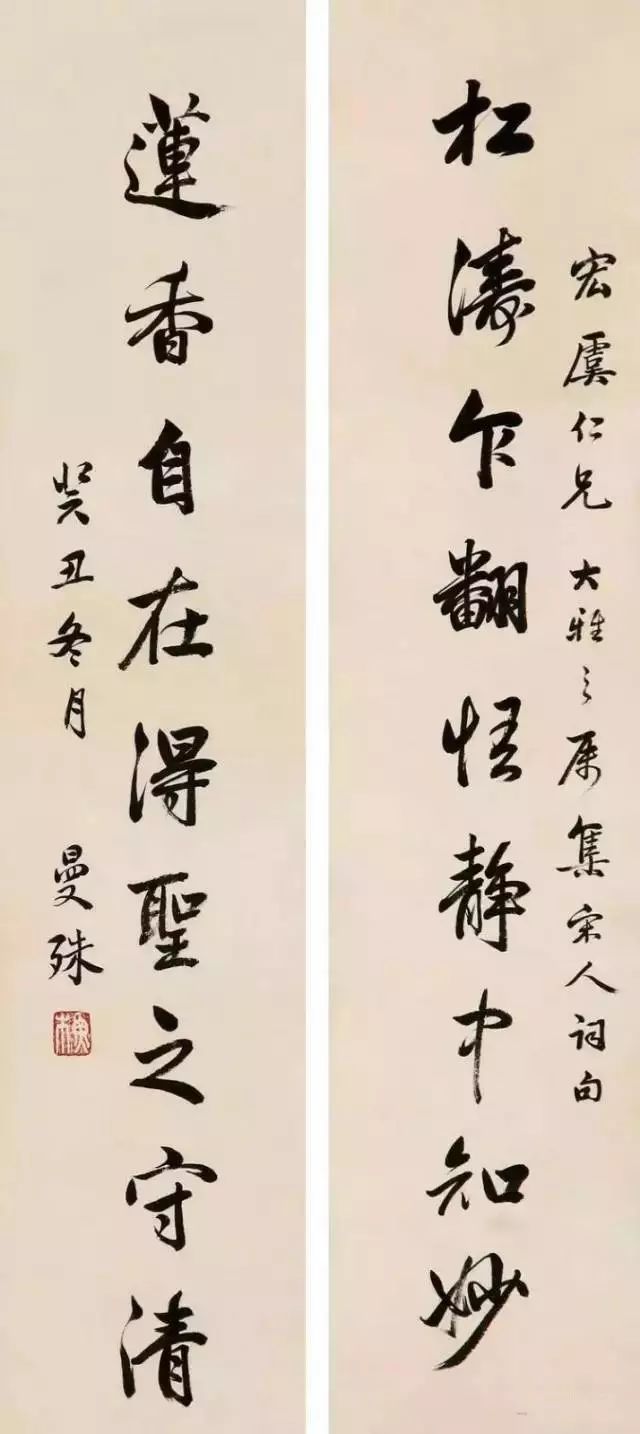 宏虞仁兄大雅之属集宋人词句
松濤乍翻悟静中知妙
蓮香自在得聖之守清
癸丑冬月 曼殊